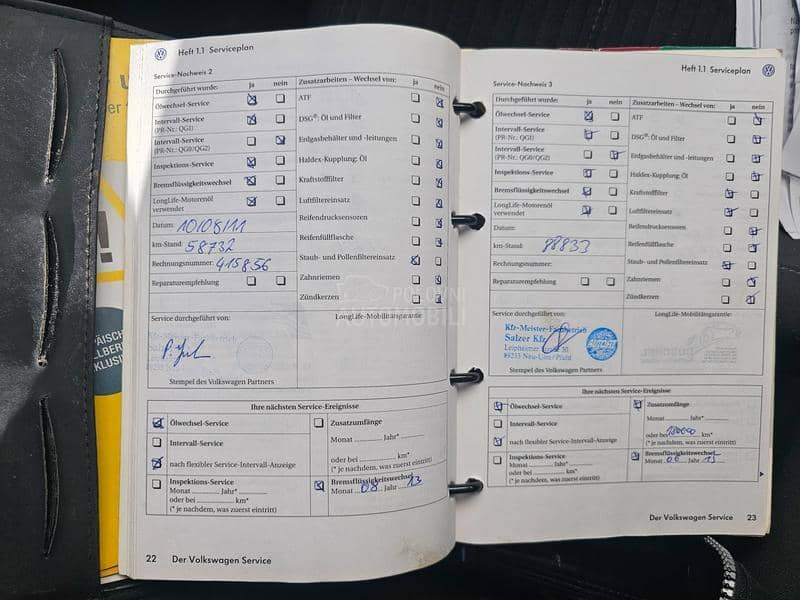 Heft 1.1 Serviceplan
Service-Nachweis 2
Durchgeführt wurde: ja nein
Zusatzarbeiten – Wechsel von: ja nein
Ölwechsel-Service
ATF
Intervall-Service
(PR-Nr.: QG1)
DSG®: Öl und Filter
Intervall-Service
(PR-Nr.: QG0/QG2)
Erdgasbehälter und -leitungen
Inspektions-Service
Haldex-Kupplung: Öl
Bremsflüssigkeitswechsel
Kraftstofffilter
LongLife-Motorenöl
verwendet
Luftfiltereinsatz
Datum: 10/08/11
Reifendrucksensoren
km-Stand: 58732
Reifenfüllflasche
Rechnungsnummer: 415856
Staub- und Pollenfiltereinsatz
Reparaturempfehlung
Zahnriemen
Zündkerzen
Service durchgeführt von:
LongLife-Mobilitätsgarantie
POLOVNI
AUTOMOBILI
Stempel des Volkswagen Partners
Ihre nächsten Service-Ereignisse
Ölwechsel-Service
Zusatzumfänge
Intervall-Service
Monat Jahr*
nach flexibler Service-Intervall-Anzeige
oder bei km*
(* je nachdem, was zuerst eintritt)
Inspektions-Service
Monat Jahr*
oder bei km*
(* je nachdem, was zuerst eintritt)
Bremsflüssigkeitswechsel
Monat 08 Jahr 13
22 Der Volkswagen Service
Heft 1.1 Serviceplan
Service-Nachweis 3
Durchgeführt wurde: ja nein
Zusatzarbeiten – Wechsel von: ja nein
Ölwechsel-Service
ATF
Intervall-Service
(PR-Nr.: QG1)
DSG®: Öl und Filter
Intervall-Service
(PR-Nr.: QG0/QG2)
Erdgasbehälter und -leitungen
Inspektions-Service
Haldex-Kupplung: Öl
Bremsflüssigkeitswechsel
Kraftstofffilter
LongLife-Motorenöl
verwendet
Luftfiltereinsatz
Datum:
Reifendrucksensoren
km-Stand: 88833
Reifenfüllflasche
Rechnungsnummer:
Staub- und Pollenfiltereinsatz
Reparaturempfehlung
Zahnriemen
Zündkerzen
Service durchgeführt von:
LongLife-Mobilitätsgarantie
Kfz-Meister-Fachbetrieb
Salzer Kfz
Leipheimer
89233 Neu-Ulm/Pfuhl
Stempel des Volkswagen Partners
Ihre nächsten Service-Ereignisse
Ölwechsel-Service
Zusatzumfänge
Intervall-Service
Monat Jahr*
nach flexibler Service-Intervall-Anzeige
oder bei km*
(* je nachdem, was zuerst eintritt)
Inspektions-Service
Monat Jahr*
oder bei km*
(* je nachdem, was zuerst eintritt)
Bremsflüssigkeitswechsel
Monat 06 Jahr 15
Der Volkswagen Service 23